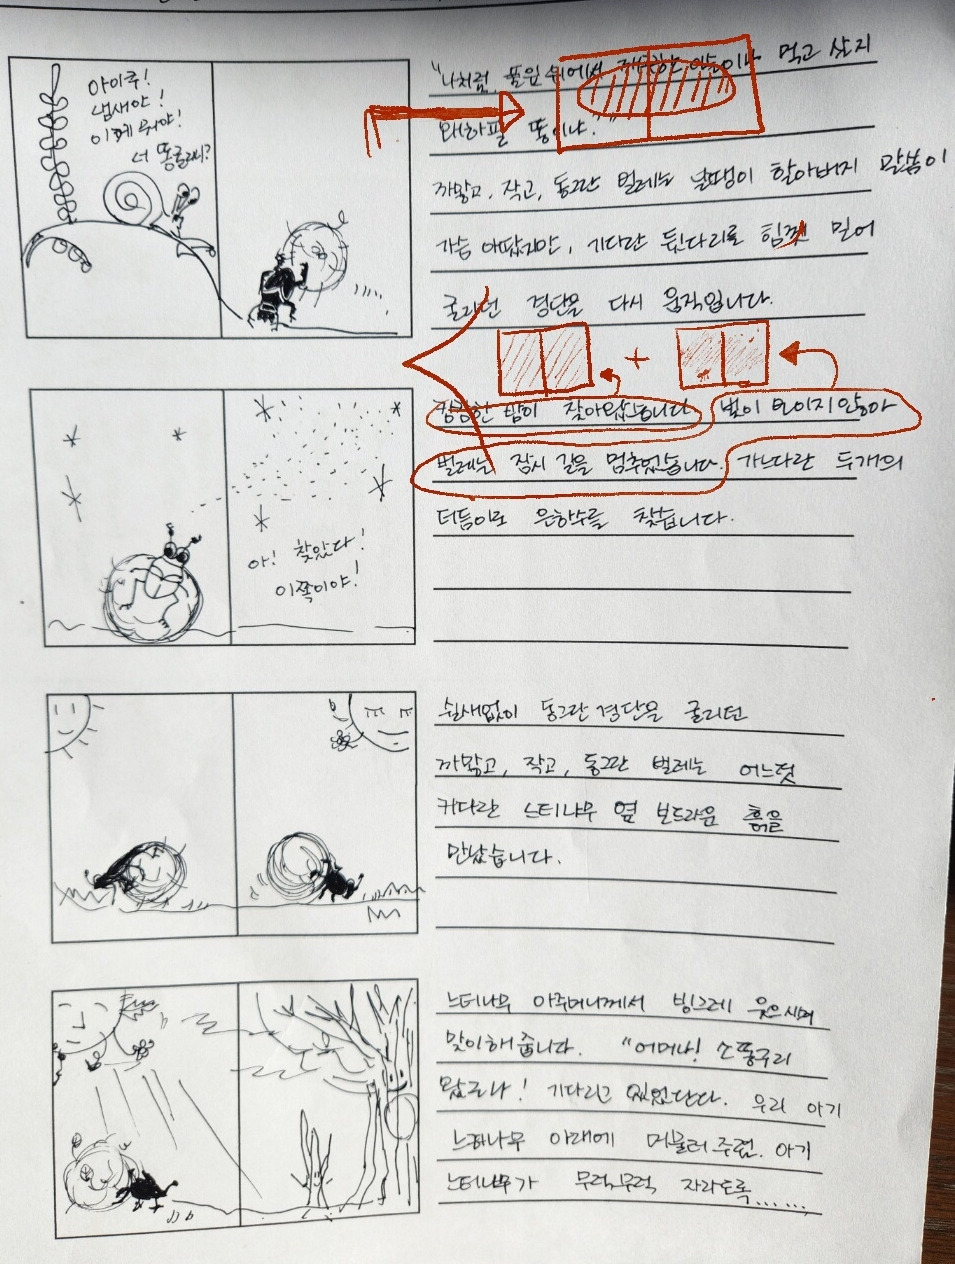 아이쿠!
냄새야!
이게 뭐야!
너 똥굴리니?
"나처럼, 풀잎 위에서 이슬이나 먹고 살지
왜하필 똥이냐."
까맣고, 작고, 동그란 벌레는 달팽이 할아버지 말씀이
가슴 아팠지만, 기다란 뒷다리로 힘껏 밀어
굴리던 경단을 다시 움직입니다.
+
캄캄한 밤이 찾아왔습니다 별이 보이지않아
벌레는 잠시 길을 멈추었습니다. 가느다란 두개의
더듬이로 은하수를 찾습니다.
아! 찾았다!
이쪽이야!
쉴새없이 동그란 경단을 굴리던
까맣고, 작고, 동그란 벌레는 어느덧
커다란 느티나무 옆 보드라운 흙을
만났습니다.
느티나무 아주머니께서 빙그레 웃으시며
맞이해 줍니다. "어머나! 소똥구리
왔구나! 기다리고 있었단다. 우리 아기
느티나무 아래에 머물러주렴. 아기
느티나무가 무럭무럭 자라도록......,